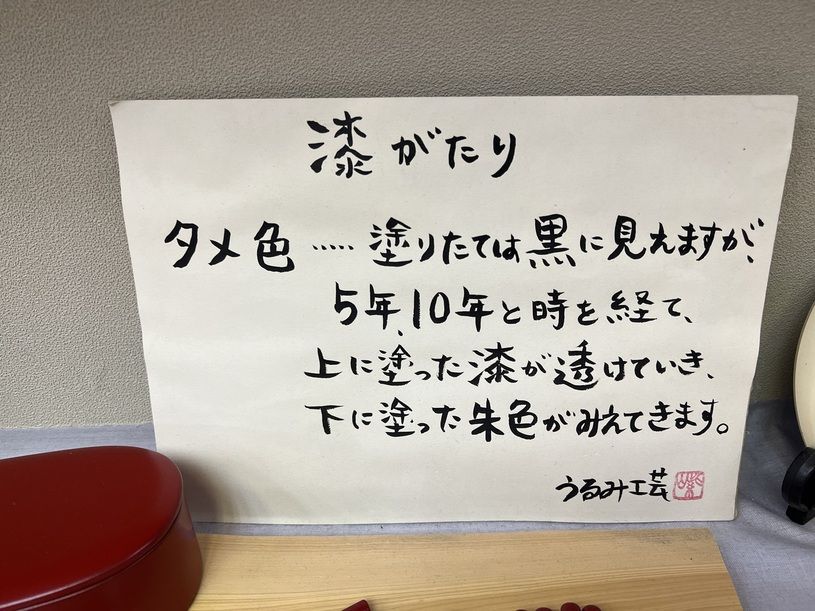 漆がたり
タメ色 ‥‥‥ 塗りたては黒に見えますが、
5年、10年と時を経て、
上に塗った漆が透けていき、
下に塗った朱色がみえてきます。
うるみ工芸